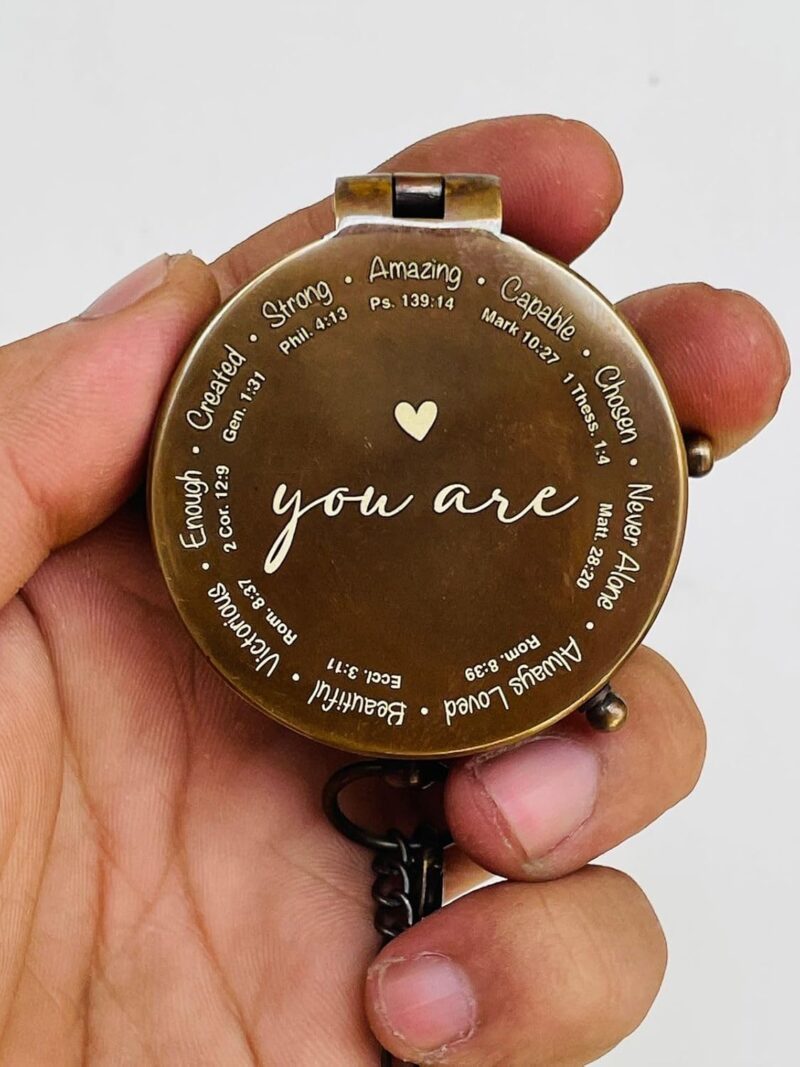 Amazing
Ps. 139:14
Capable
Mark 10:27
Chosen
1 Thess. 1:4
Never Alone
Matt. 28:20
Always Loved
Rom. 8:39
Beautiful
Eccl. 3:11
Victorious
Rom. 8:37
Enough
2 Cor. 12:9
Created
Gen. 1:31
Strong
Phil. 4:13
you are